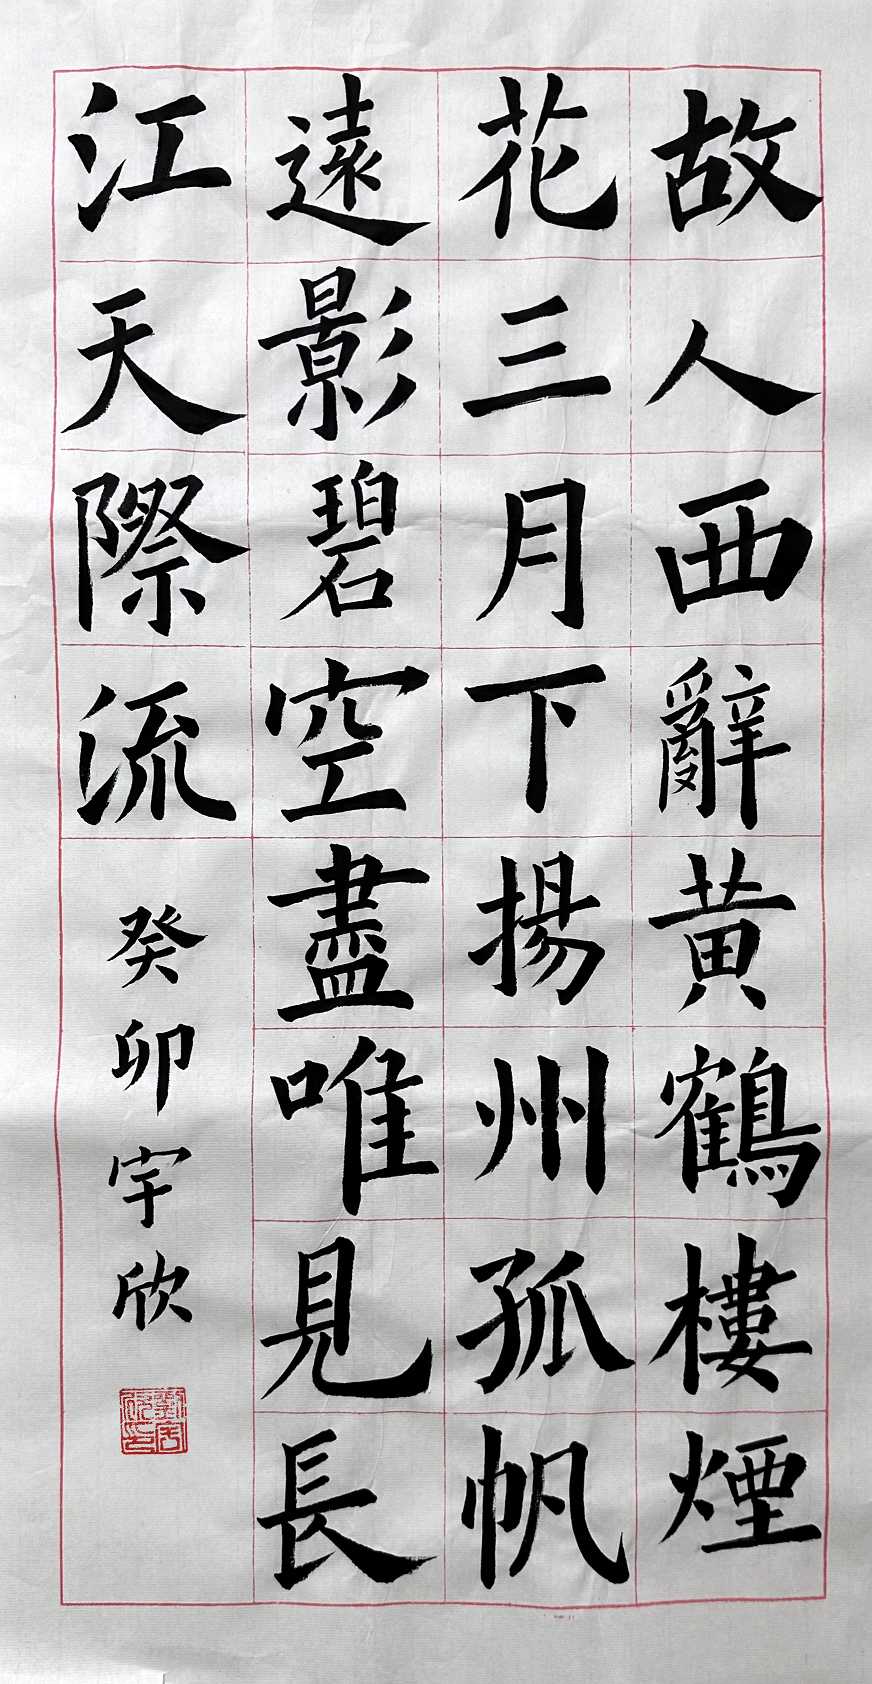 故人西辭黄鶴樓煙
花三月下揚州孤帆
遠影碧空盡唯見長
江天際流
癸卯宇欣